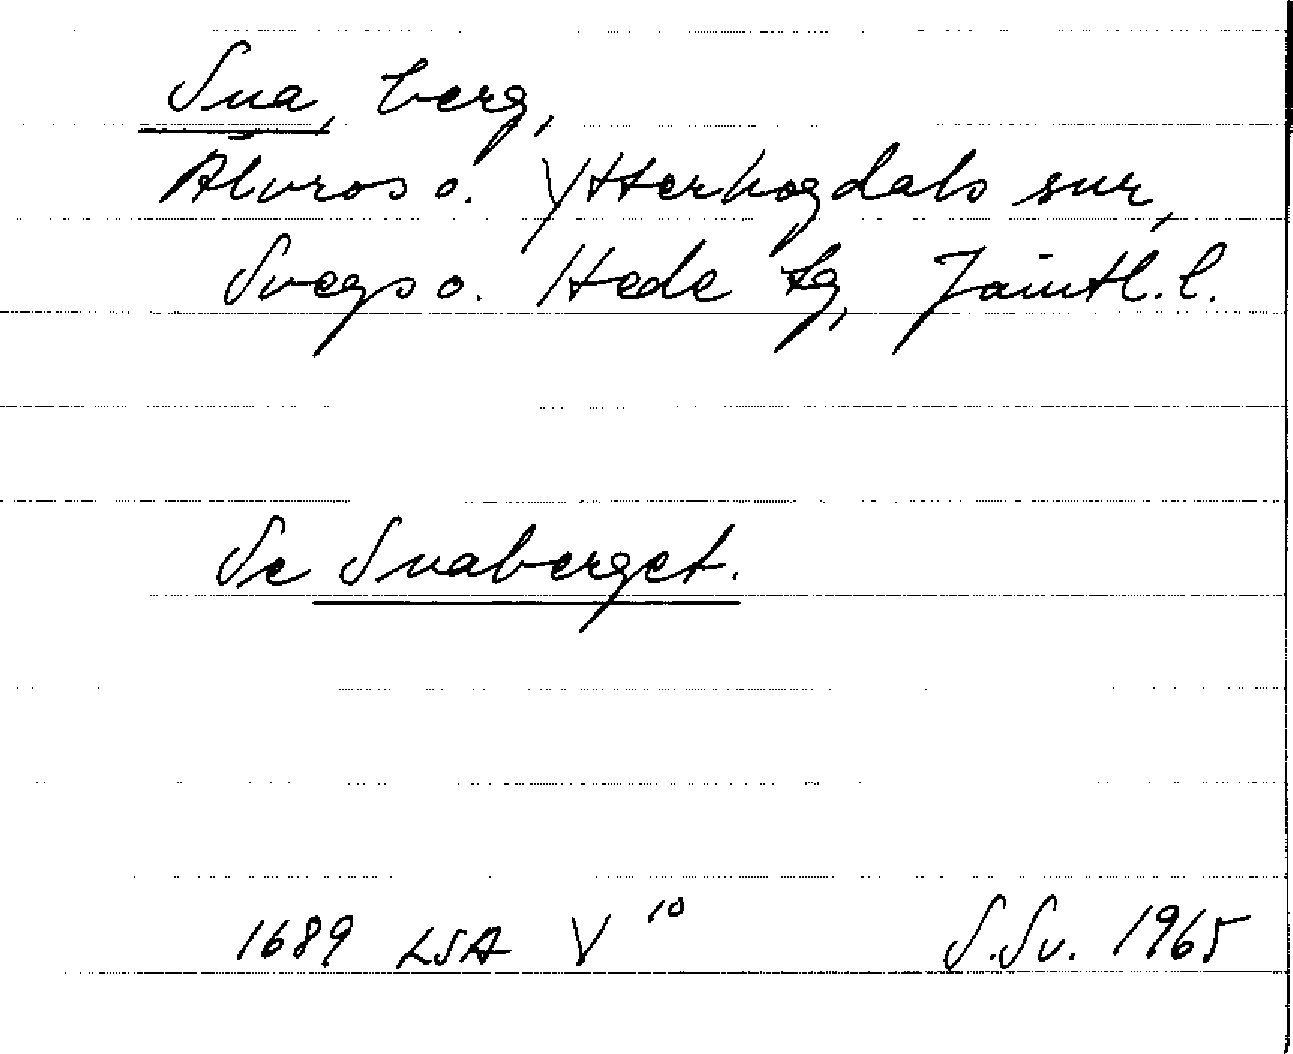 Sua, berg,
Älvros o. Ytterhogdals snr,
Svegs o. Hede tg, Jämtl. l.
Se Suaberget.
1689 LSA V 10
S.Sv. 1965